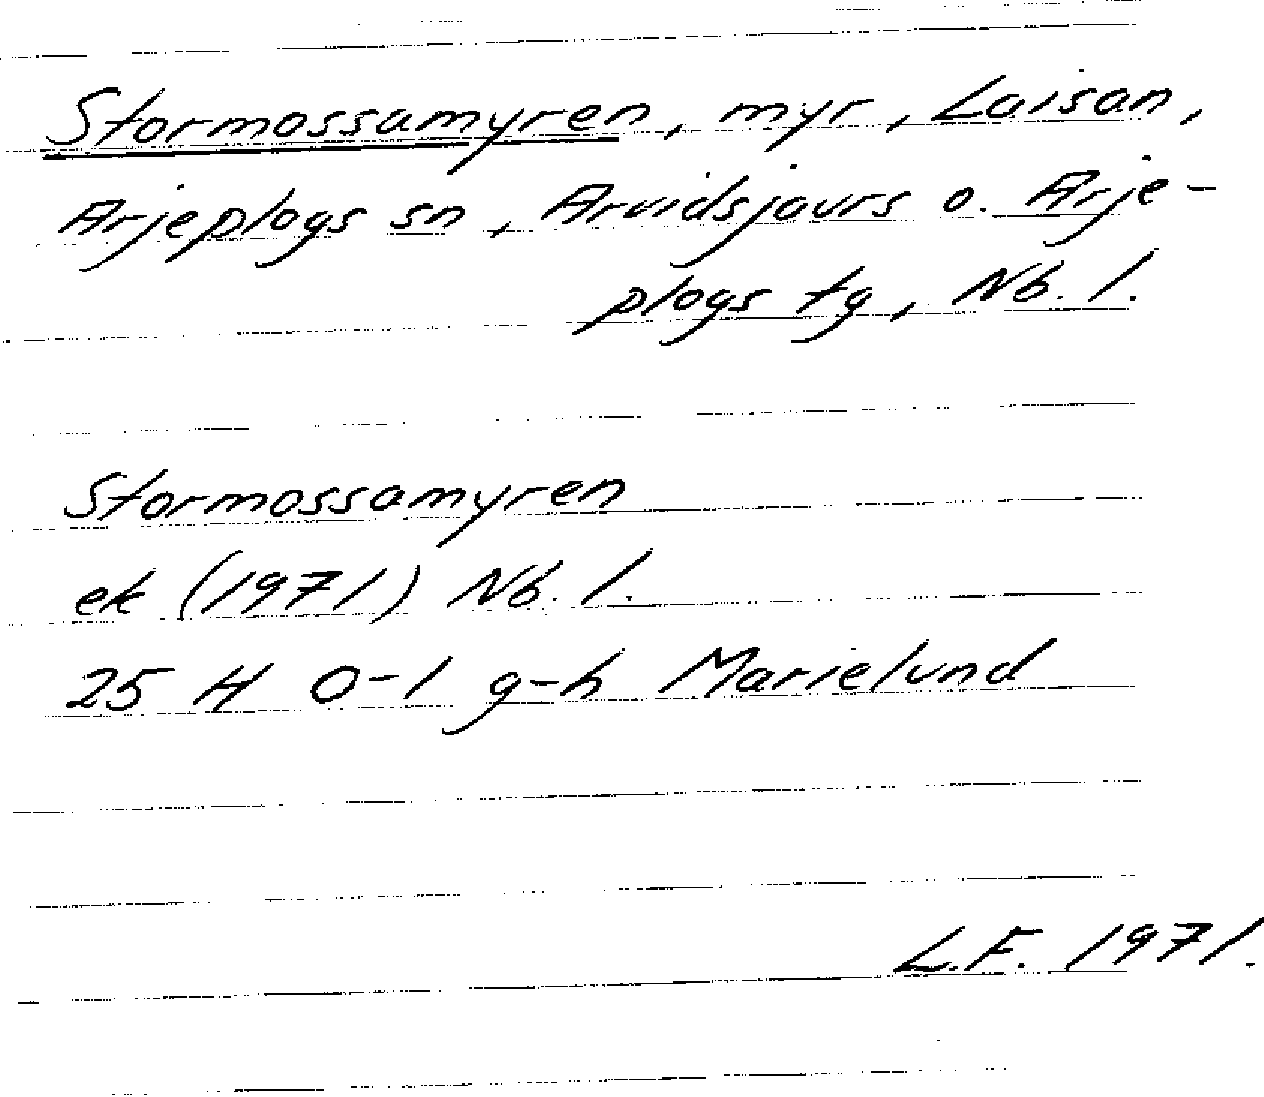 Stormossamyren, myr, Laisan,
Arjeplogs sn, Arvidsjaurs o. Arje-
plogs tg, Nb. l.
Stormossamyren
ek (1971) Nb. l.
25 H 0-1 g-h Marielund
L.F. 1971.